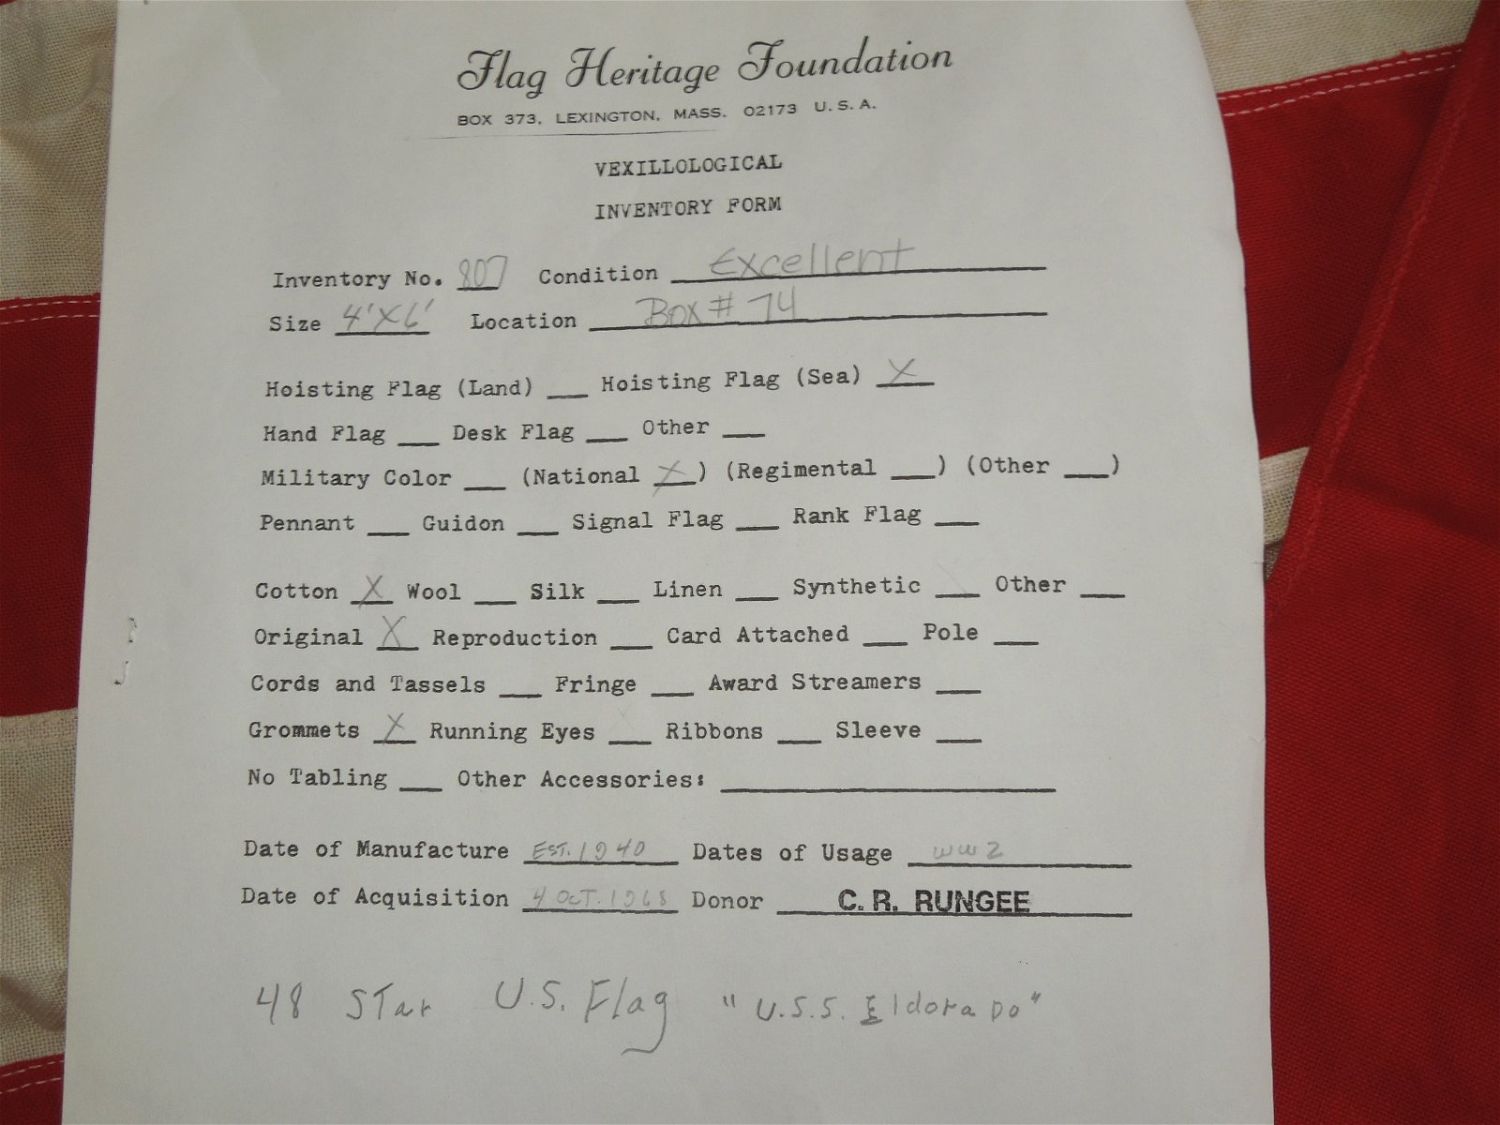 Flag Heritage Foundation
BOX 373, LEXINGTON, MASS. 02173 U.S.A.
VEXILLOLOGICAL
INVENTORY FORM
Inventory No. 807 Condition Excellent
Size 4'X6' Location Box # 74
Hoisting Flag (Land) ___ Hoisting Flag (Sea) X
Hand Flag ___ Desk Flag ___ Other ___
Military Color ___ (National X) (Regimental ___) (Other ___)
Pennant ___ Guidon ___ Signal Flag ___ Rank Flag ___
Cotton X Wool ___ Silk ___ Linen ___ Synthetic ___ Other ___
Original X Reproduction ___ Card Attached ___ Pole ___
Cords and Tassels ___ Fringe ___ Award Streamers ___
Grommets X Running Eyes ___ Ribbons ___ Sleeve ___
No Tabling ___ Other Accessories: ___
Date of Manufacture EST. 1940 Dates of Usage WW2
Date of Acquisition 4 OCT. 1968 Donor C. R. RUNGEE
48 STar U.S. Flag "U.S.S. Eldorado"